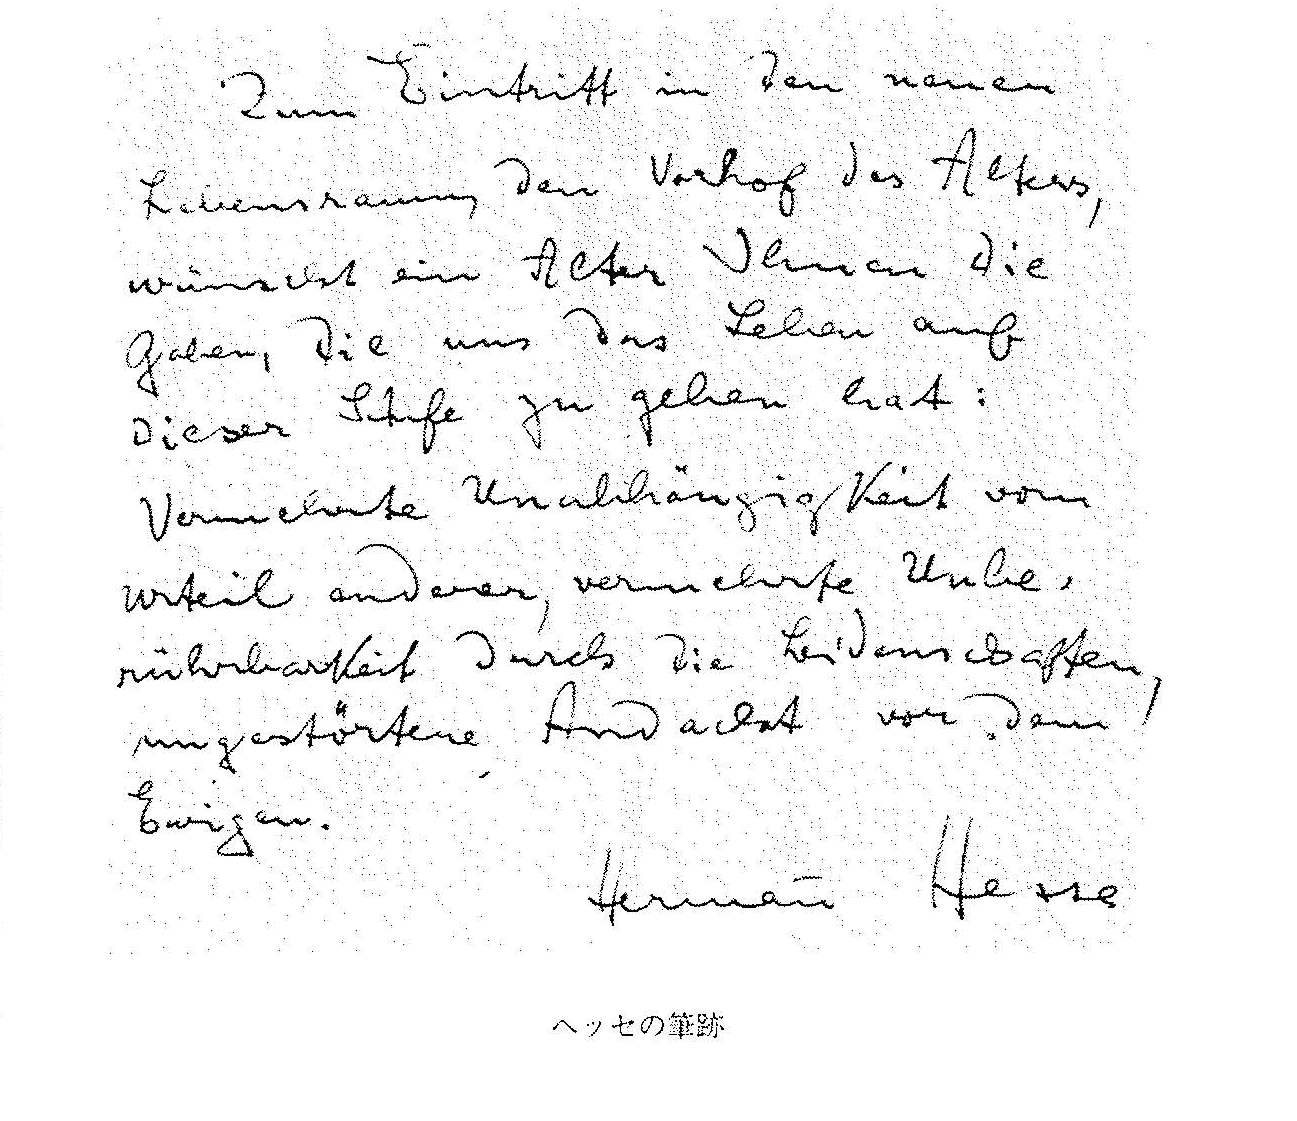 Zum Eintritt in den neuen
Lebensraum, den Vorhof des Alters,
wünscht ein Alter Ihnen die
Gaben, die uns das Leben auf
dieser Stufe zu geben hat:
Vermehrte Unabhängigkeit vom
Urteil anderer, vermehrte Unbe-
rührbarkeit durch die Leidenschaften,
ungestörtere Andacht vor dem
Ewigen.
Herman̄ Hesse
ヘッセの筆跡